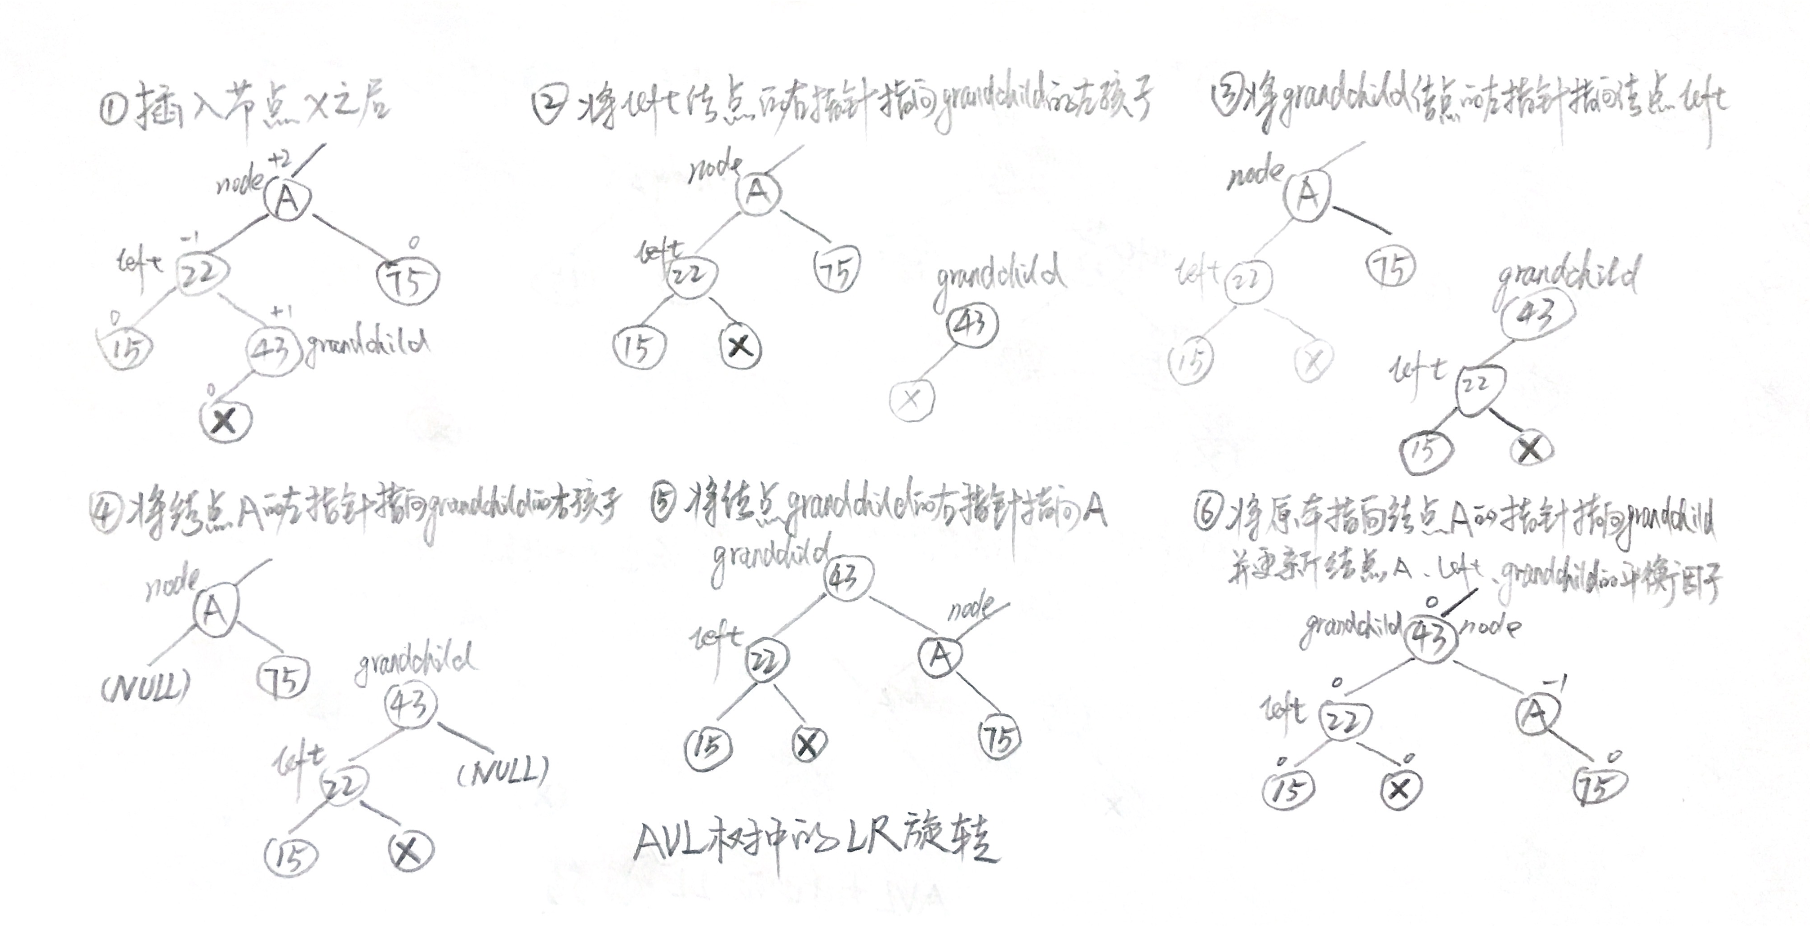 ①插入节点X之后
+2
node A
-1
left 22
0
75
0
15
+1
43 grandchild
0
X
②将left结点的右指针指向grandchild的左孩子
node A
left 22
75
15
X
grandchild
43
X
③将grandchild结点的左指针指向结点left
node A
left 22
75
15
X
grandchild
43
left 22
15
X
④将结点A的左指针指向grandchild的右孩子
node A
(NULL)
75
grandchild
43
left 22
(NULL)
15
X
⑤将结点grandchild的右指针指向A
grandchild 43
left 22
node A
15
X
75
⑥将原本指向结点A的指针指向grandchild
并更新结点A、left、grandchild的平衡因子
0
grandchild 43 node
0
left 22
-1
A
0
15
0
X
0
75
AVL树中的LR旋转